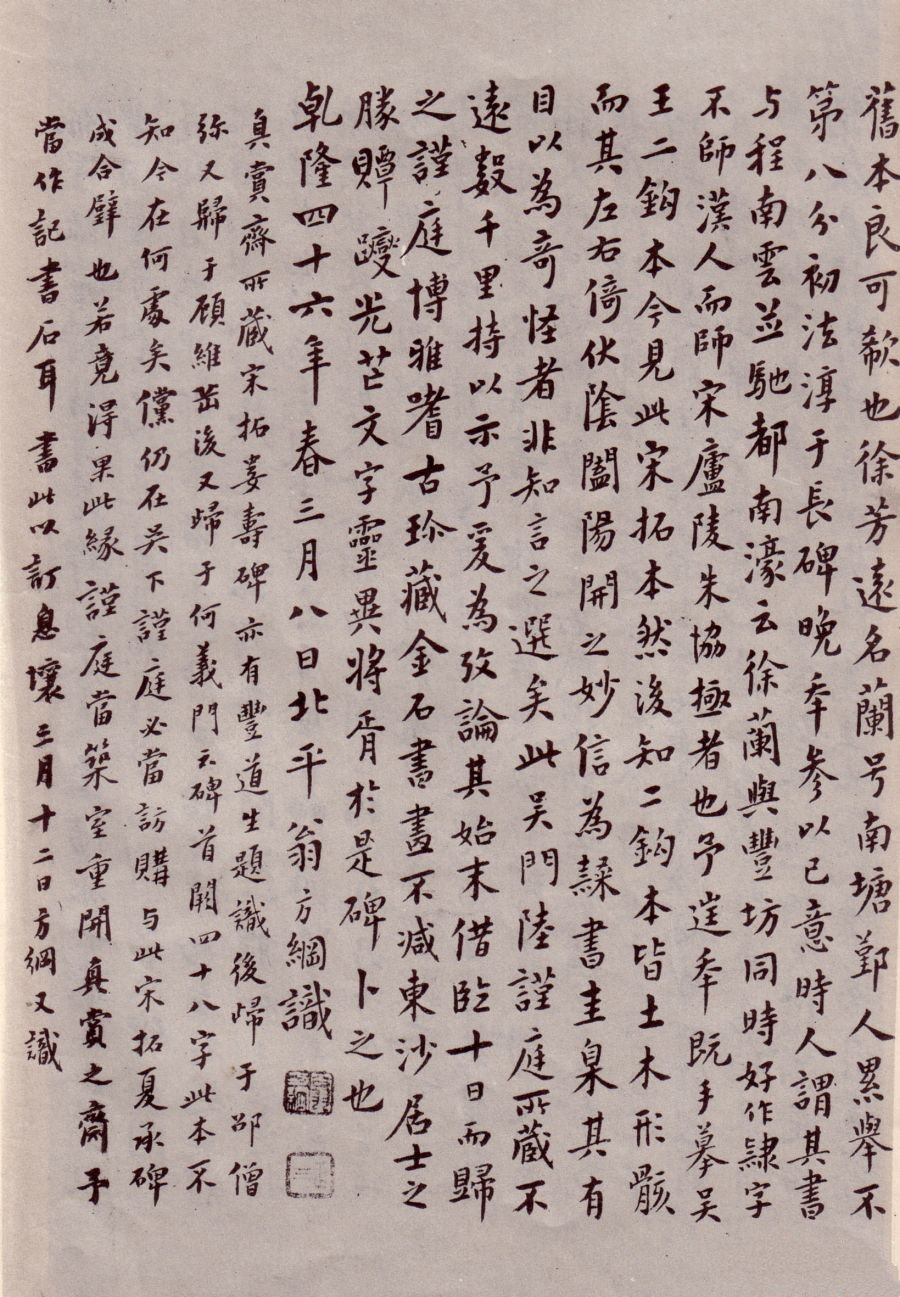 舊本良可欷也徐芳遠名蘭号南塘鄞人累舉不
第八分初法淳于長碑晚年參以已意時人謂其書
与程南雲並馳都南濠云徐蘭與豐坊同時好作隸字
不師漢人而師宋廬陵朱協極者也予遑年既手摹吴
王二鈎本今見此宋拓本然後知二鈎本皆土木形骸
而其左右倚伏陰闔陽開之妙信為隸書圭臬其有
目以為奇怪者非知言之選矣此吴門陸謹庭所蔵不
遠數千里持以示予爰為攷論其始末借臨十日而歸
之謹庭博雅嗜古珎藏金石書畫不减東沙居士之
勝贉躞光芒文字靈異將胥於是碑卜之也
乹隆四十六年春三月八日北平翁方綱識
真賞齋所蔵宋拓婁壽碑亦有豐道生題識後歸于邵僧
弥又歸于顾維嵒後又歸于何義門云碑首闕四十八字此本不
知今在何處矣儻仍在吴下謹庭必當訪購与此宋拓夏承碑
成合璧也若竟得果此緣謹庭當築室重開真賞之齋予
當作記書石耳 書此以訂息壤三月十二日方綱又識